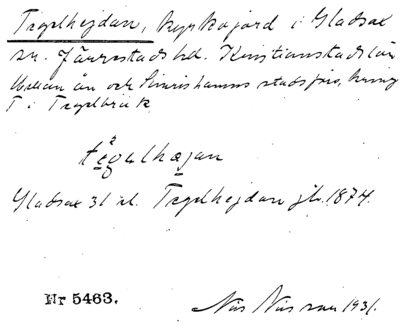 Tegelhejdan, kyrkojord i Gladsax
sn. Järrestads hd. Kristianstads län
Mellan ån och Simrishamns stadsjord, kring
T i Tegelbruk
tegalhæjan
Gladsax 31 kl. Tegelhejdan jb. 1874.
Nr 5463.
Nils Nilsson 1931.